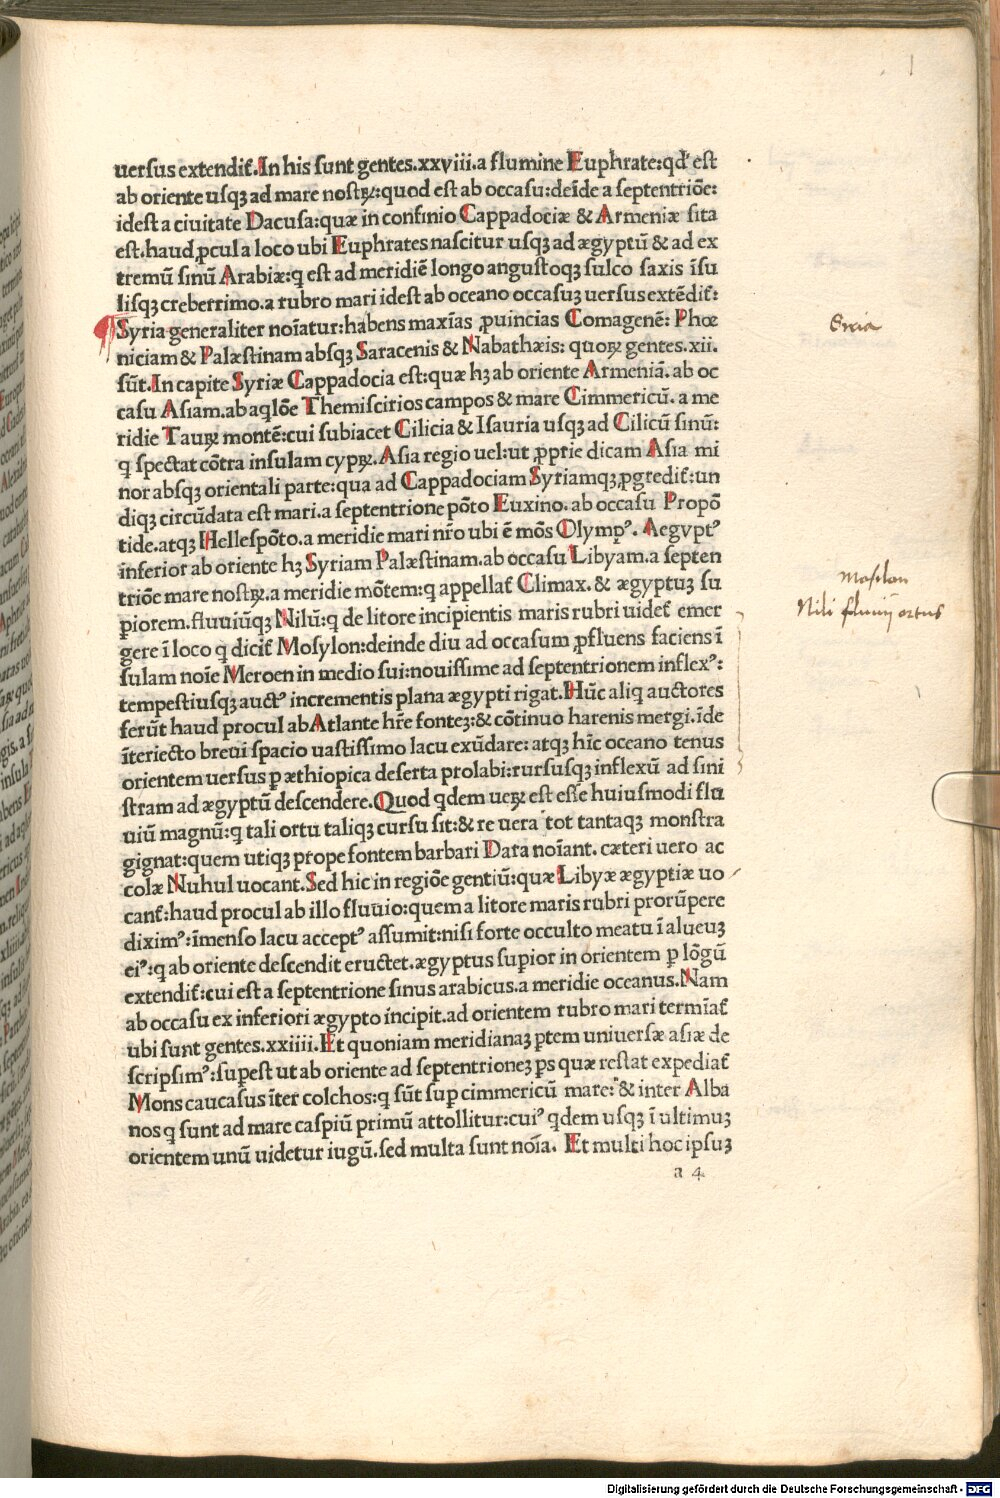 uersus extendit᷑.In his sunt gentes.xxviii.a flumine Euphrate:qd᷑ est
ab oriente usqꝫ ad mare nostꝝ:quod est ab occasu:deĩde a septentriõe:
idest a ciuitate Dacusa:quæ in confinio Cappadociæ & Armeniæ sita
est.haud ꝓcul a loco ubi Euphrates nascitur usqꝫ ad ægyptũ & ad ex
tremũ sinũ Arabiæ:q est ad meridiẽ longo angustoqꝫ sulco saxis ĩsu
lisqꝫ creberrimo.a rubro mari idest ab oceano occasuꝫ uersus extẽdit᷑:
¶Syria generaliter noĩatur:habens maxĩas ꝓuincias Comagenẽ: Phœ
niciam & Palæstinam absqꝫ Saracenis & Nabathæis: quoꝝ gentes.xii.
sũt.In capite Syriæ Cappadocia est:quæ hꝫ ab oriente Armeniã. ab oc
casu Asiam.ab aqlõe Themiscirios campos & mare Cimmericũ. a me
ridie Tauꝝ montẽ:cui subiacet Cilicia & Isauria usqꝫ ad Cilicũ sinũ:
q spectat cõtra insulam cypꝝ.Asia regio uel:ut ꝓprie dicam Asia mi
nor absqꝫ orientali parte:qua ad Cappadociam Syriamqꝫ ꝓgredit᷑:un
diqꝫ circũdata est mari.a septentrione põto Euxino. ab occasu Propõ
tide.atqꝫ Hellespõto.a meridie mari nr̃o ubi ẽ mõs Olympꝰ. Aegyptꝰ
inferior ab oriente hꝫ Syriam Palæstinam.ab occasu Libyam.a septen
triõe mare nostꝝ.a meridie mõtem:q appellat᷑ Climax. & ægyptuꝫ su
ꝑiorem.fluuiũqꝫ Nilũ:q de litore incipientis maris rubri uidet᷑ emer
gere ĩ loco q dicit᷑ Mosylon:deinde diu ad occasum ꝓfluens faciens ĩ
sulam noĩe Meroen in medio sui:nouissime ad septentrionem inflexꝰ:
tempestiusqꝫ auctꝰ incrementis plana ægypti rigat.Hũc aliq auctores
ferũt haud procul ab Atlante hr̃e fonteꝫ:& cõtinuo harenis mergi.ĩde
ĩteriecto breui spacio uastissimo lacu exũdare: atqꝫ hĩc oceano tenus
orientem uersus ꝑ æthiopica deserta prolabi:rursusqꝫ inflexũ ad sini
stram ad ægyptũ descendere.Quod qdem ueꝝ est esse huiusmodi flu
uiũ magnũ:q tali ortu taliqꝫ cursu sit:& re uera tot tantaqꝫ monstra
gignat:quem utiqꝫ prope fontem barbari Dara noĩant. cæteri uero ac
colæ Nuhul uocant.Sed hic in regiõe gentiũ:quæ Libyæ ægyptiæ uo
cant᷑:haud procul ab illo fluuio:quem a litore maris rubri prorũpere
diximꝰ:ĩmenso lacu acceptꝰ assumit:nisi forte occulto meatu ĩ alueuꝫ
eiꝰ:q ab oriente descendit eructet.ægyptus suꝑior in orientem ꝑ lõgũ
extendit᷑:cui est a septentrione sinus arabicus.a meridie oceanus.Nam
ab occasu ex inferiori ægypto ĩcipit.ad orientem rubro mari termĩat᷑
ubi sunt gentes.xxiiii.Et quoniam meridianaꝫ ꝑtem uniuersæ asiæ de
scripsimꝰ:suꝑest ut ab oriente ad septentrioneꝫ ꝑs quæ restat expediat᷑
Mons caucasus ĩter colchos:q sũt suꝑ cimmericũ mare: & inter Alba
nos q sunt ad mare caspiũ primũ attollitur:cuiꝰ qdem usqꝫ ĩ ultimuꝫ
orientem unũ uidetur iugũ.sed multa sunt noĩa. Et multi hoc ipsuꝫ
a 4
Siria
Mosilon
Nili fluuij ortus
Digitalisierung gefördert durch die Deutsche Forschungsgemeinschaft - DFG